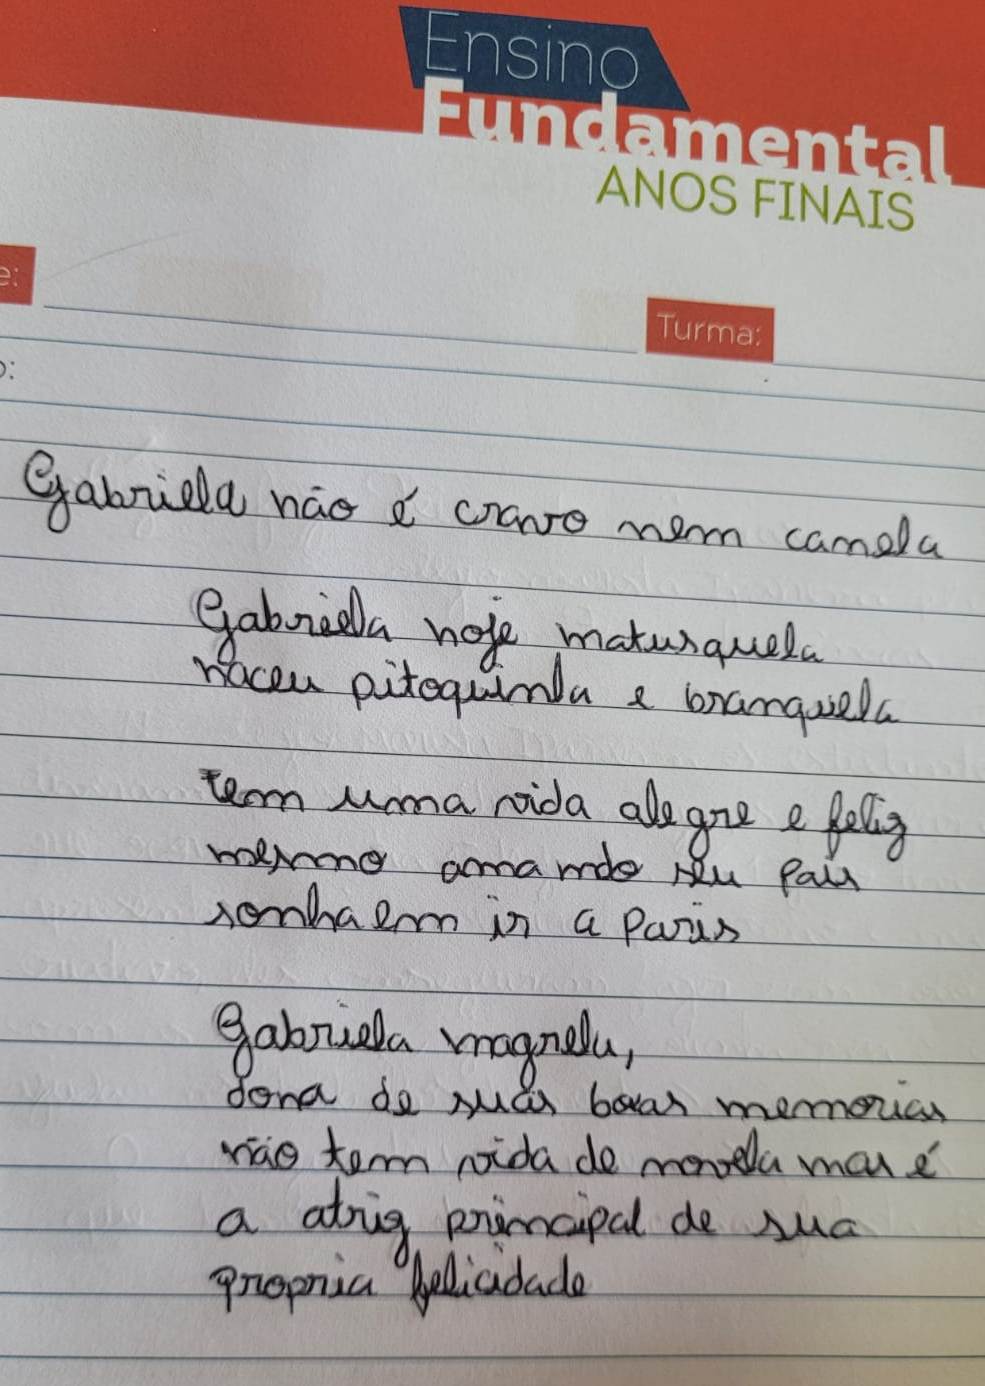 Ensino
Fundamental
ANOS FINAIS
e:
Turma:
o:
Gabriella não é cravo nem camela
Gabriella hoje maturquela
naceu pitoquinha e branquela
tem uma vida alegre e feliz
mesmo amando seu pais
sonha em ir a Paris
Gabriela magrela,
dona de suas boas memorias
não tem vida de novela mas é
a atriz principal de sua
propria felicidade